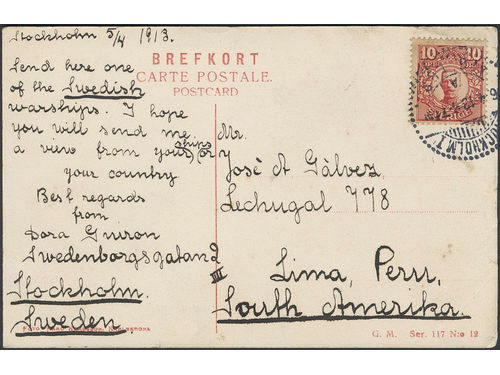 Stockholm 5/4 1913.
Send here one
of the Swedish
warships. I hope
you will send me
a view from your ships or
your country
Best regards
from
Dora
Swedenborgsgatan 2
III
Stockholm.
Sweden.
BREFKORT
CARTE POSTALE.
POSTCARD
10 10
Mr.
José A Gálvez
Lechugal 778
Lima, Peru,
South Amerika.
G. M. Ser. 117 N:o 12